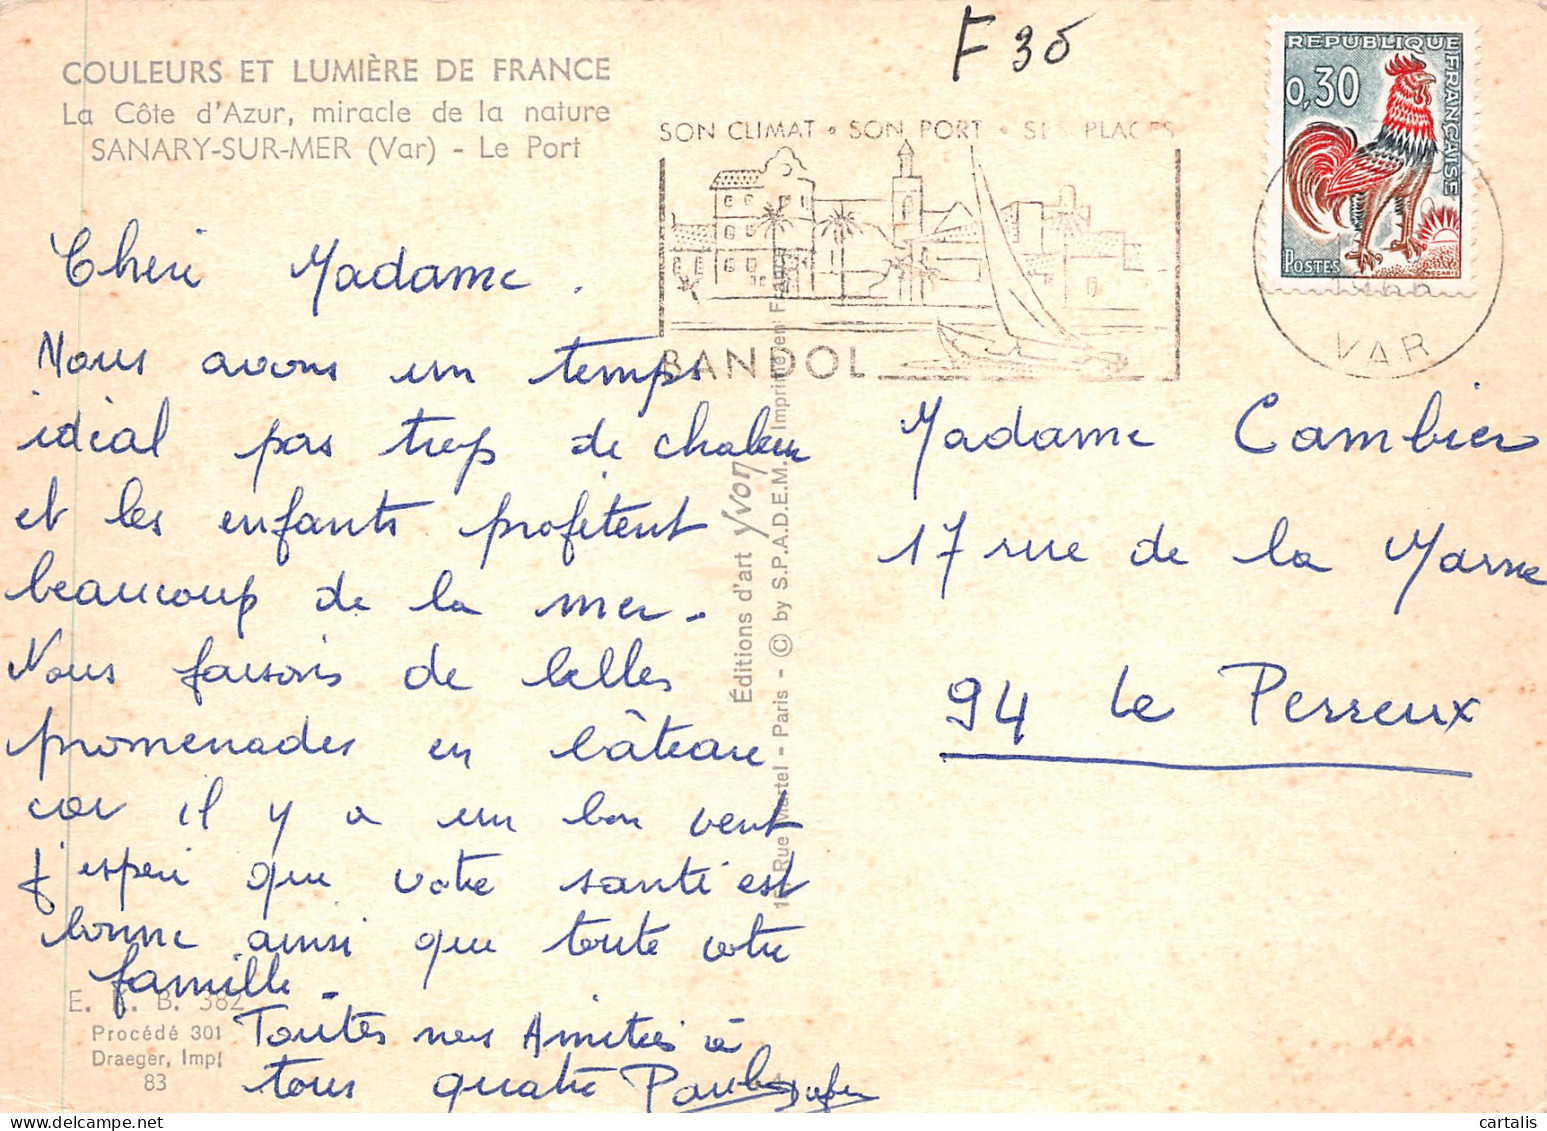 COULEURS ET LUMIÈRE DE FRANCE
La Côte d'Azur, miracle de la nature
SANARY-SUR-MER (Var) - Le Port
F 35
SON CLIMAT • SON PORT • SES PLAGES
BANDOL
REPUBLIQUE FRANÇAISE
0,30
POSTES
DECARIS
VAR
Cheri Madame.
Nous avons un temps
idial pas trop de chaleur
et les enfants profitent
beaucoup de la mer -
Nous faisons de belles
promenades en bâteau
car il y a un bon vent
J'esperi que votre santé est
bonne ainsi que toute votre
famille -
Toutes nos Amitiés à
tous quatre
Éditions d'art Yvon
Rue Martel - Paris - © by S.P.A.D.E.M. Imprimé en France
Madame Cambier
17 rue de la Marne
94 Le Perreux
E. B. 382
Procédé 301
Draeger, Imp
83
cartalis
delcampe.net